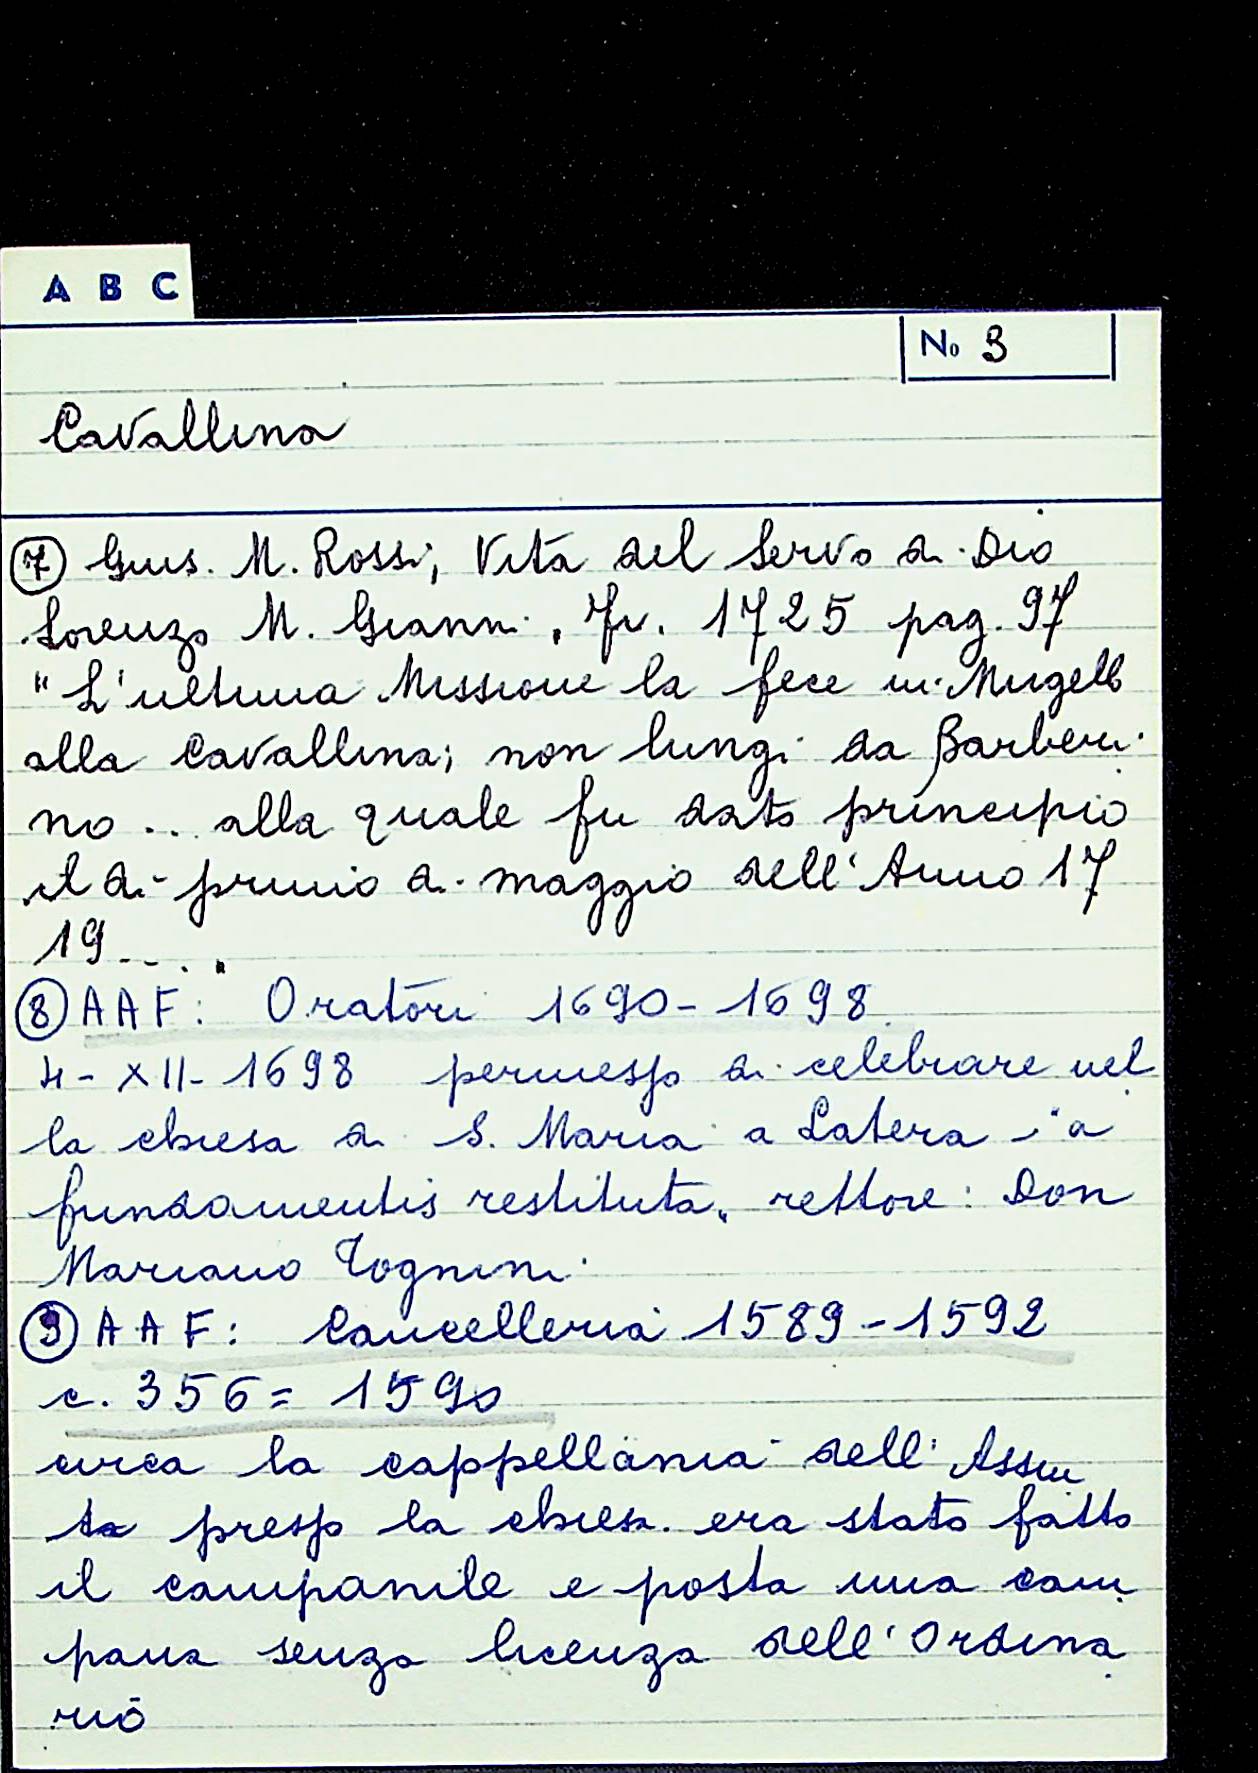 A B C
No 3
Cavallina
7 Gius. M. Rossi, Vita del Servo di Dio
Lorenzo M. Gianni, Fi. 1725 pag. 97
"L'ultima Missione la fece in Mugello
alla Cavallina; non lungi da Barberi
no ... alla quale fu dato principio
il dì primo di maggio dell'Anno 17
19...."
8 AAF: Oratori 1690-1698
4-XII-1698 permesso di celebrare nel
la chiesa di S. Maria a Latera "a
fundamentis restituta" rettore: Don
Mariano Tognini
9 AAF: Cancelleria 1589-1592
c. 356= 1590
circa la cappellania dell'Assun
ta presso la chiesa. era stato fatto
il campanile e posta una cam
pana senza licenza dell'Ordina
rio